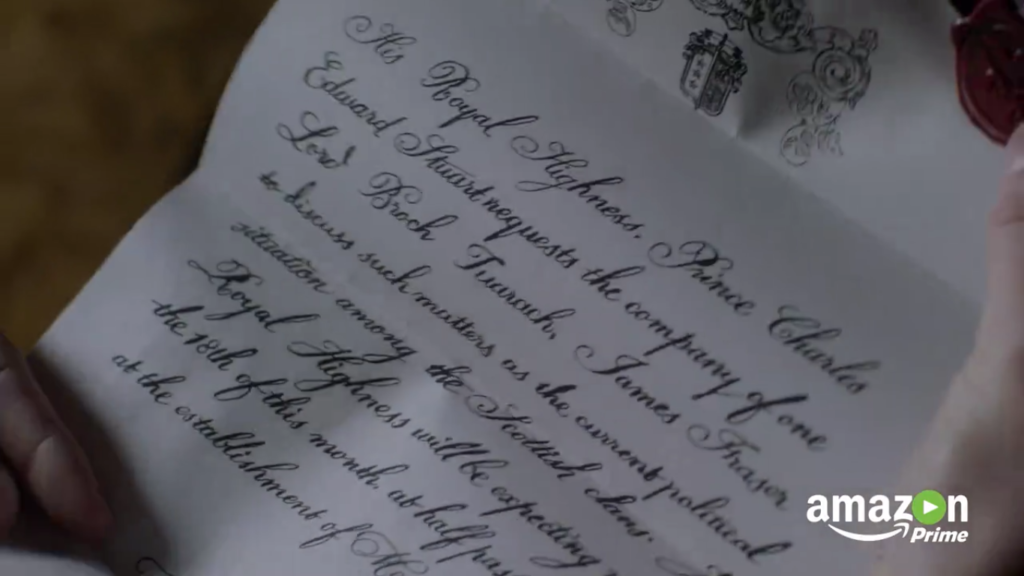 His Royal Highness, Prince Charles
Edward Stuart requests the company of one
Lord Broch Tuarach, James Fraser
to discuss such matters as the current political
situation among the Scottish clans.
Royal Highness will be expecting
the 18th of this month at half
at the establishment of
amazon
Prime